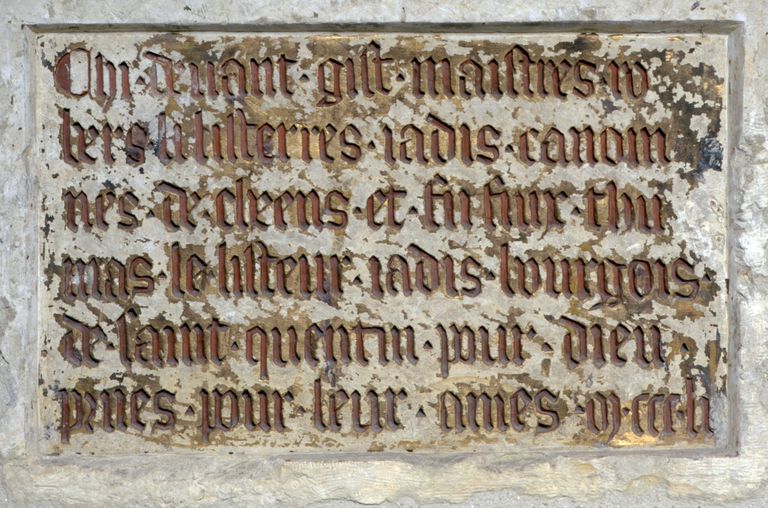 Chi · deuant · gist · maistres · ro
bers · li listerres · iadis · canoin
nes · de · cheens · et · fu fiux · thu
mas · le listeur · iadis · bourgois
de · saint · quentin · pour · dieu ·
pries · pour · leur · ames · m · ccc · li